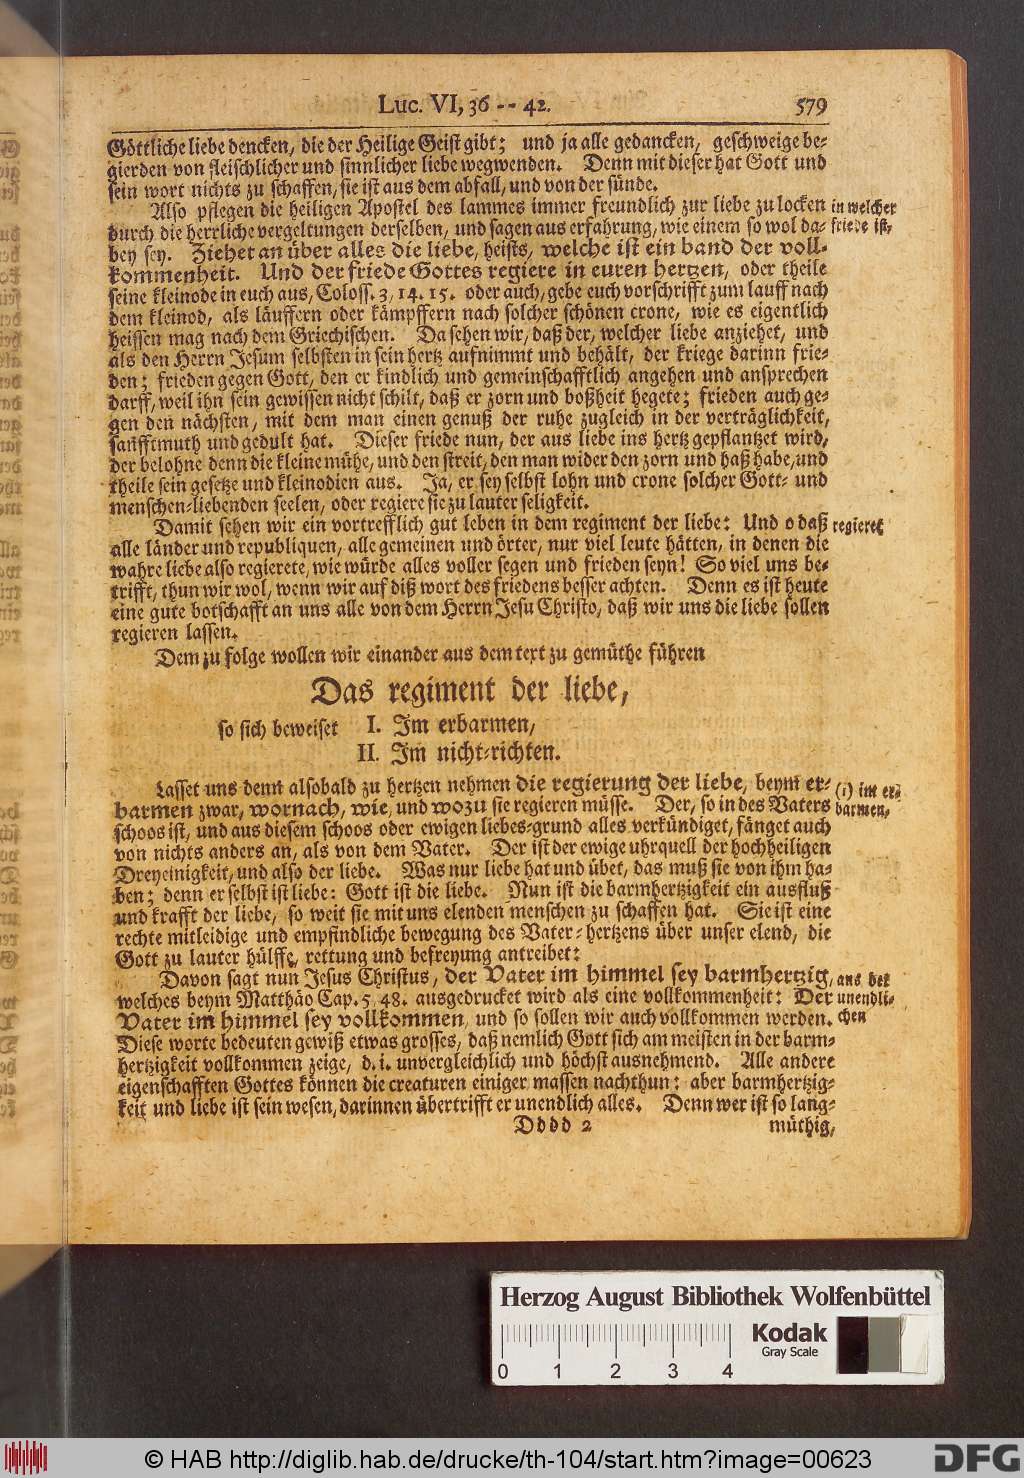 Luc. VI, 36 -- 42. 579
Göttliche liebe dencken, die der Heilige Geist gibt; und ja alle gedancken, geschweige be-
gierden von fleischlicher und sinnlicher liebe wegwenden. Denn mit dieser hat Gott und
sein wort nichts zu schaffen, sie ist aus dem abfall, und von der sünde.
Also pflegen die heiligen Apostel des lammes immer freundlich zur liebe zu locken in welcher
durch die herrliche vergeltungen derselben, und sagen aus erfahrung, wie einem so wol da- friede ist,
bey sey. Ziehet an über alles die liebe, heists, welche ist ein band der voll-
kommenheit. Und der friede Gottes regiere in euren hertzen, oder theile
seine kleinode in euch aus, Coloss. 3, 14. 15. oder auch, gebe euch vorschrifft zum lauff nach
dem kleinod, als läuffern oder kämpffern nach solcher schönen crone, wie es eigentlich
heissen mag nach dem Griechischen. Da sehen wir, daß der, welcher liebe anziehet, und
als den Herrn Jesum selbsten in sein hertz aufnimmt und behält, der kriege darinn frie-
den; frieden gegen Gott, den er kindlich und gemeinschafftlich angehen und ansprechen
darff, weil ihn sein gewissen nicht schilt, daß er zorn und boßheit hegete; frieden auch ge-
gen den nächsten, mit dem man einen genuß der ruhe zugleich in der verträglichkeit,
sanfftmuth und gedult hat. Dieser friede nun, der aus liebe ins hertz gepflantzet wird,
der belohne denn die kleine mühe, und den streit, den man wider den zorn und haß habe, und
theile sein gesetze und kleinodien aus. Ja, er sey selbst lohn und crone solcher Gott- und
menschen-liebenden seelen, oder regiere sie zu lauter seligkeit.
Damit sehen wir ein vortrefflich gut leben in dem regiment der liebe: Und o daß regieret
alle länder und republiquen, alle gemeinen und örter, nur viel leute hätten, in denen die
wahre liebe also regierete, wie würde alles voller segen und frieden seyn! So viel uns be-
trifft, thun wir wol, wenn wir auf diß wort des friedens besser achten. Denn es ist heute
eine gute botschafft an uns alle von dem Herrn Jesu Christo, daß wir uns die liebe sollen
regieren lassen.
Dem zu folge wollen wir einander aus dem text zu gemüthe führen
Das regiment der liebe,
so sich beweiset I. Im erbarmen,
II. Im nicht-richten.
Lasset uns denn alsobald zu hertzen nehmen die regierung der liebe, beym er- (1) im er-
barmen zwar, wornach, wie, und wozu sie regieren müsse. Der, so in des Vaters barmen,
schoos ist, und aus diesem schoos oder ewigen liebes-grund alles verkündiget, fänget auch
von nichts anders an, als von dem Vater. Der ist der ewige uhrquell der hochheiligen
Dreyeinigkeit, und also der liebe. Was nur liebe hat und übet, das muß sie von ihm ha-
ben; denn er selbst ist liebe: Gott ist die liebe. Nun ist die barmhertzigkeit ein ausfluß
und krafft der liebe, so weit sie mit uns elenden menschen zu schaffen hat. Sie ist eine
rechte mitleidige und empfindliche bewegung des Vater-hertzens über unser elend, die
Gott zu lauter hülffe, rettung und befreyung antreibet:
Davon sagt nun Jesus Christus, der Vater im himmel sey barmhertzig, aus der
welches beym Matthäo Cap. 5, 48. ausgedrucket wird als eine vollkommenheit: Der unendli-
Vater im himmel sey vollkommen, und so sollen wir auch vollkommen werden. chen
Diese worte bedeuten gewiß etwas grosses, daß nemlich Gott sich am meisten in der barm-
hertzigkeit vollkommen zeige, d. i. unvergleichlich und höchst ausnehmend. Alle andere
eigenschafften Gottes können die creaturen einiger massen nachthun: aber barmhertzig-
keit und liebe ist sein wesen, darinnen übertrifft er unendlich alles. Denn wer ist so lang-
Dddd 2 müthig,
Herzog August Bibliothek Wolfenbüttel
Kodak
Gray Scale
0 1 2 3 4
© HAB http://diglib.hab.de/drucke/th-104/start.htm?image=00623
DFG